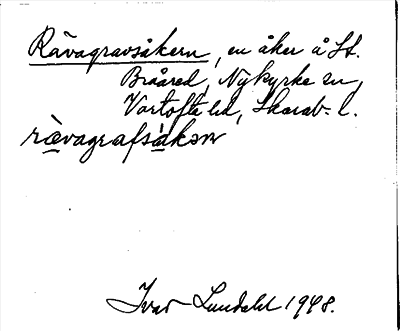 Rävagravsåkern, en åker å St.
Braåred, Nykyrke sn,
Vartofta hd, Skarab. l.
rävagrafsåkən
Ivar Lundahl 1948.